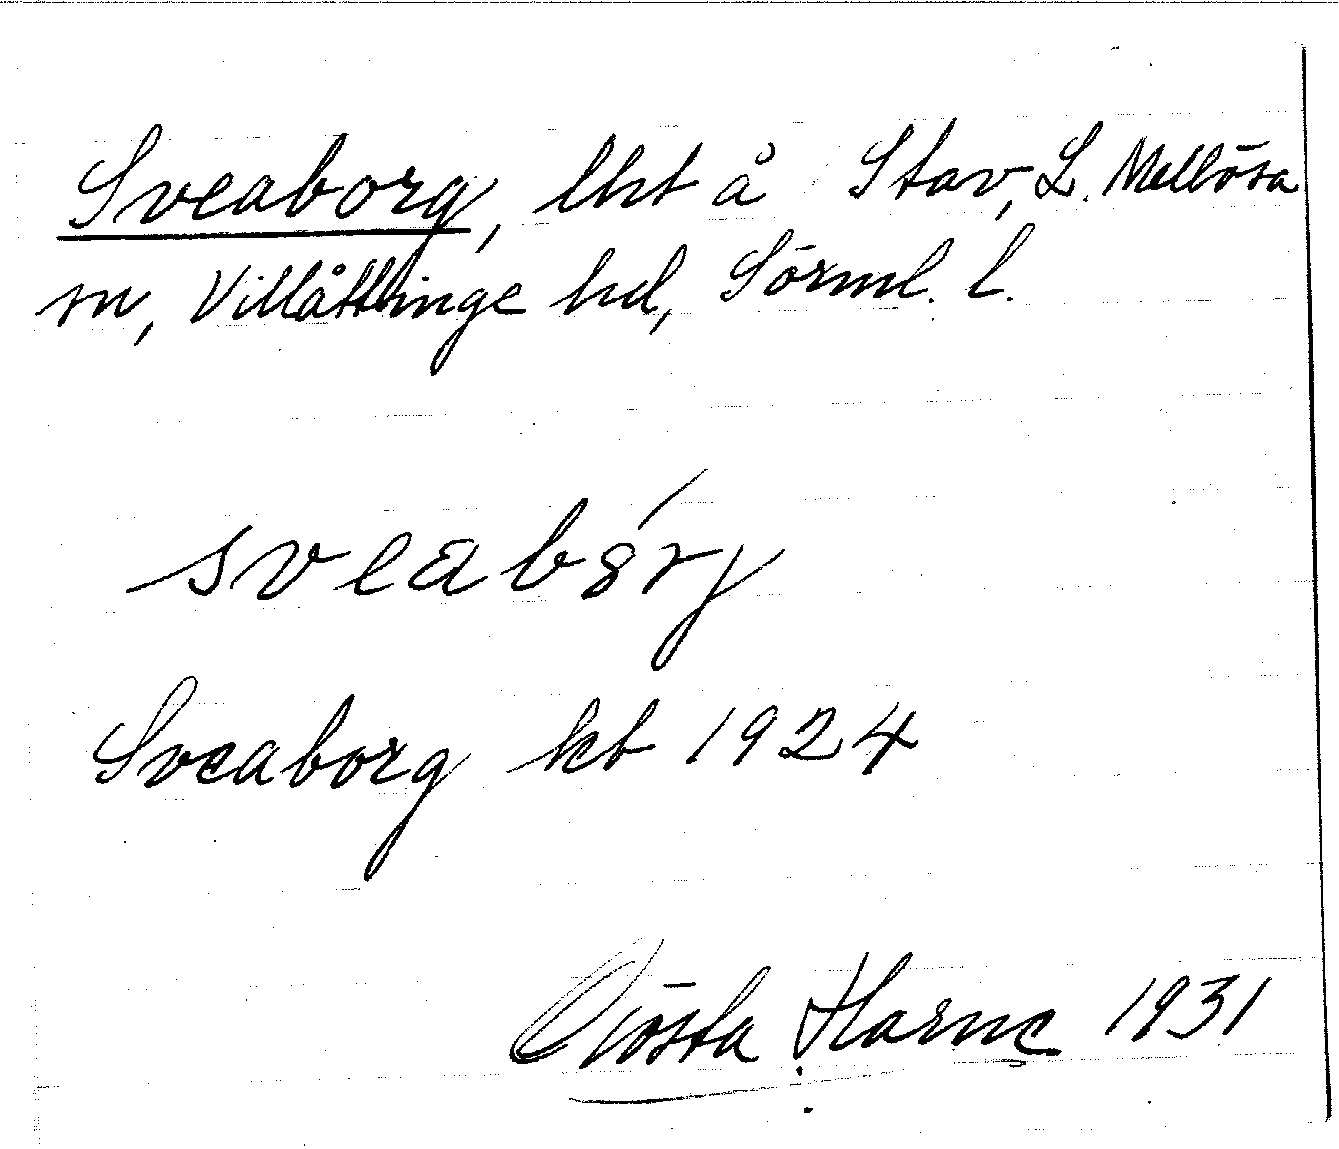 Sveaborg, lht å Stav, L. Mellösa
sn, Villåttinge hd, Sörml. l.
sveabórj
Sveaborg kb 1924
Gösta Harne 1931